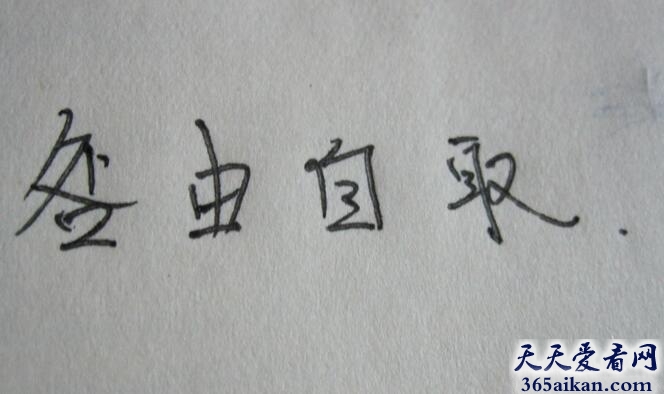 咎由自取.
天天爱看网
365aikan.com